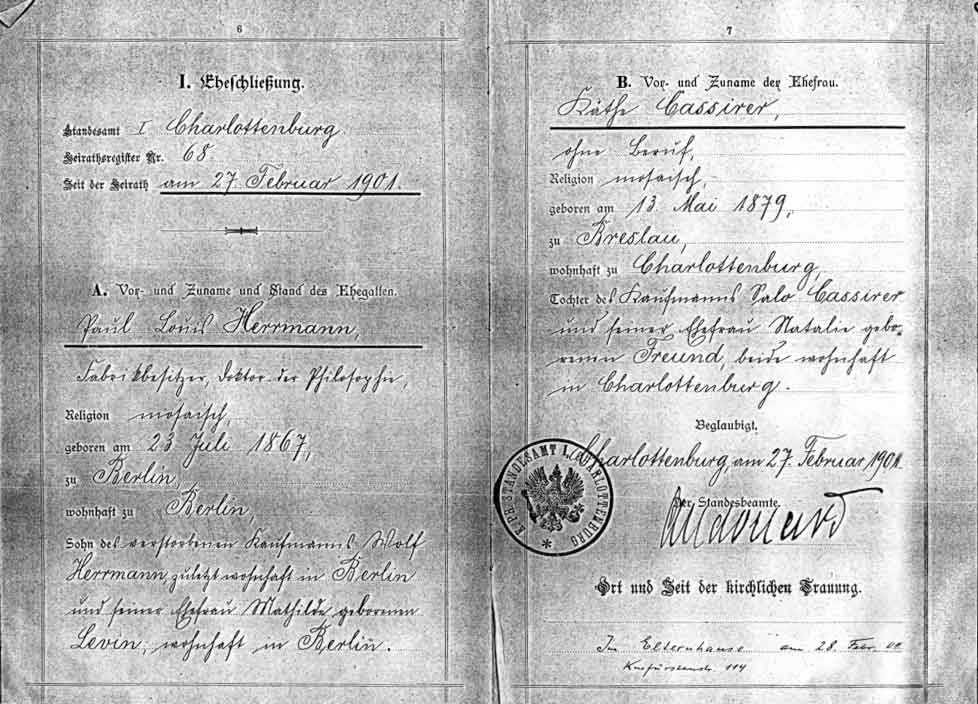 6
I. Eheschließung.
Standesamt I Charlottenburg
Heirathsregister Nr. 68
Zeit der Heirath am 27. Februar 1901.
A. Vor- und Zuname und Stand des Ehegatten.
Paul Louis Herrmann,
Fabrikbesitzer, Doktor der Philosophie,
Religion mosaisch,
geboren am 23 Juli 1867,
zu Berlin,
wohnhaft zu Berlin,
Sohn des verstorbenen Kaufmanns Wolf
Herrmann, zuletzt wohnhaft in Berlin
und seiner Ehefrau Mathilde geborenen
Levin, wohnhaft in Berlin.
7
B. Vor- und Zuname der Ehefrau.
Käthe Cassirer,
ohne Beruf,
Religion mosaisch,
geboren am 13. Mai 1879,
zu Breslau,
wohnhaft zu Charlottenburg,
Tochter des Kaufmanns Salo Cassirer
und seiner Ehefrau Natalie gebo-
renen Freund, beide wohnhaft
in Charlottenburg.
Beglaubigt,
Charlottenburg, am 27. Februar 1901
K. PR. STANDESAMT I. CHARLOTTENBURG
Der Standesbeamte.
Ort und Zeit der kirchlichen Trauung.
Im Elternhause am 28. Febr.
Kurfürstenstr 114